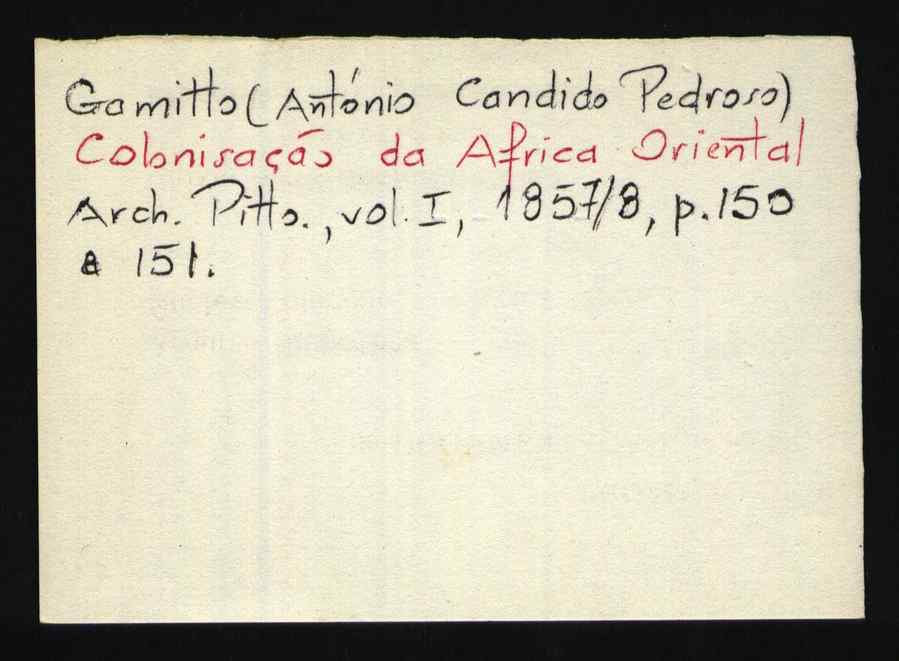 Gamitto (António Candido Pedroso)
Colonisação da Africa Oriental
Arch. Pitto., vol. I, 1857/8, p.150
a 151.